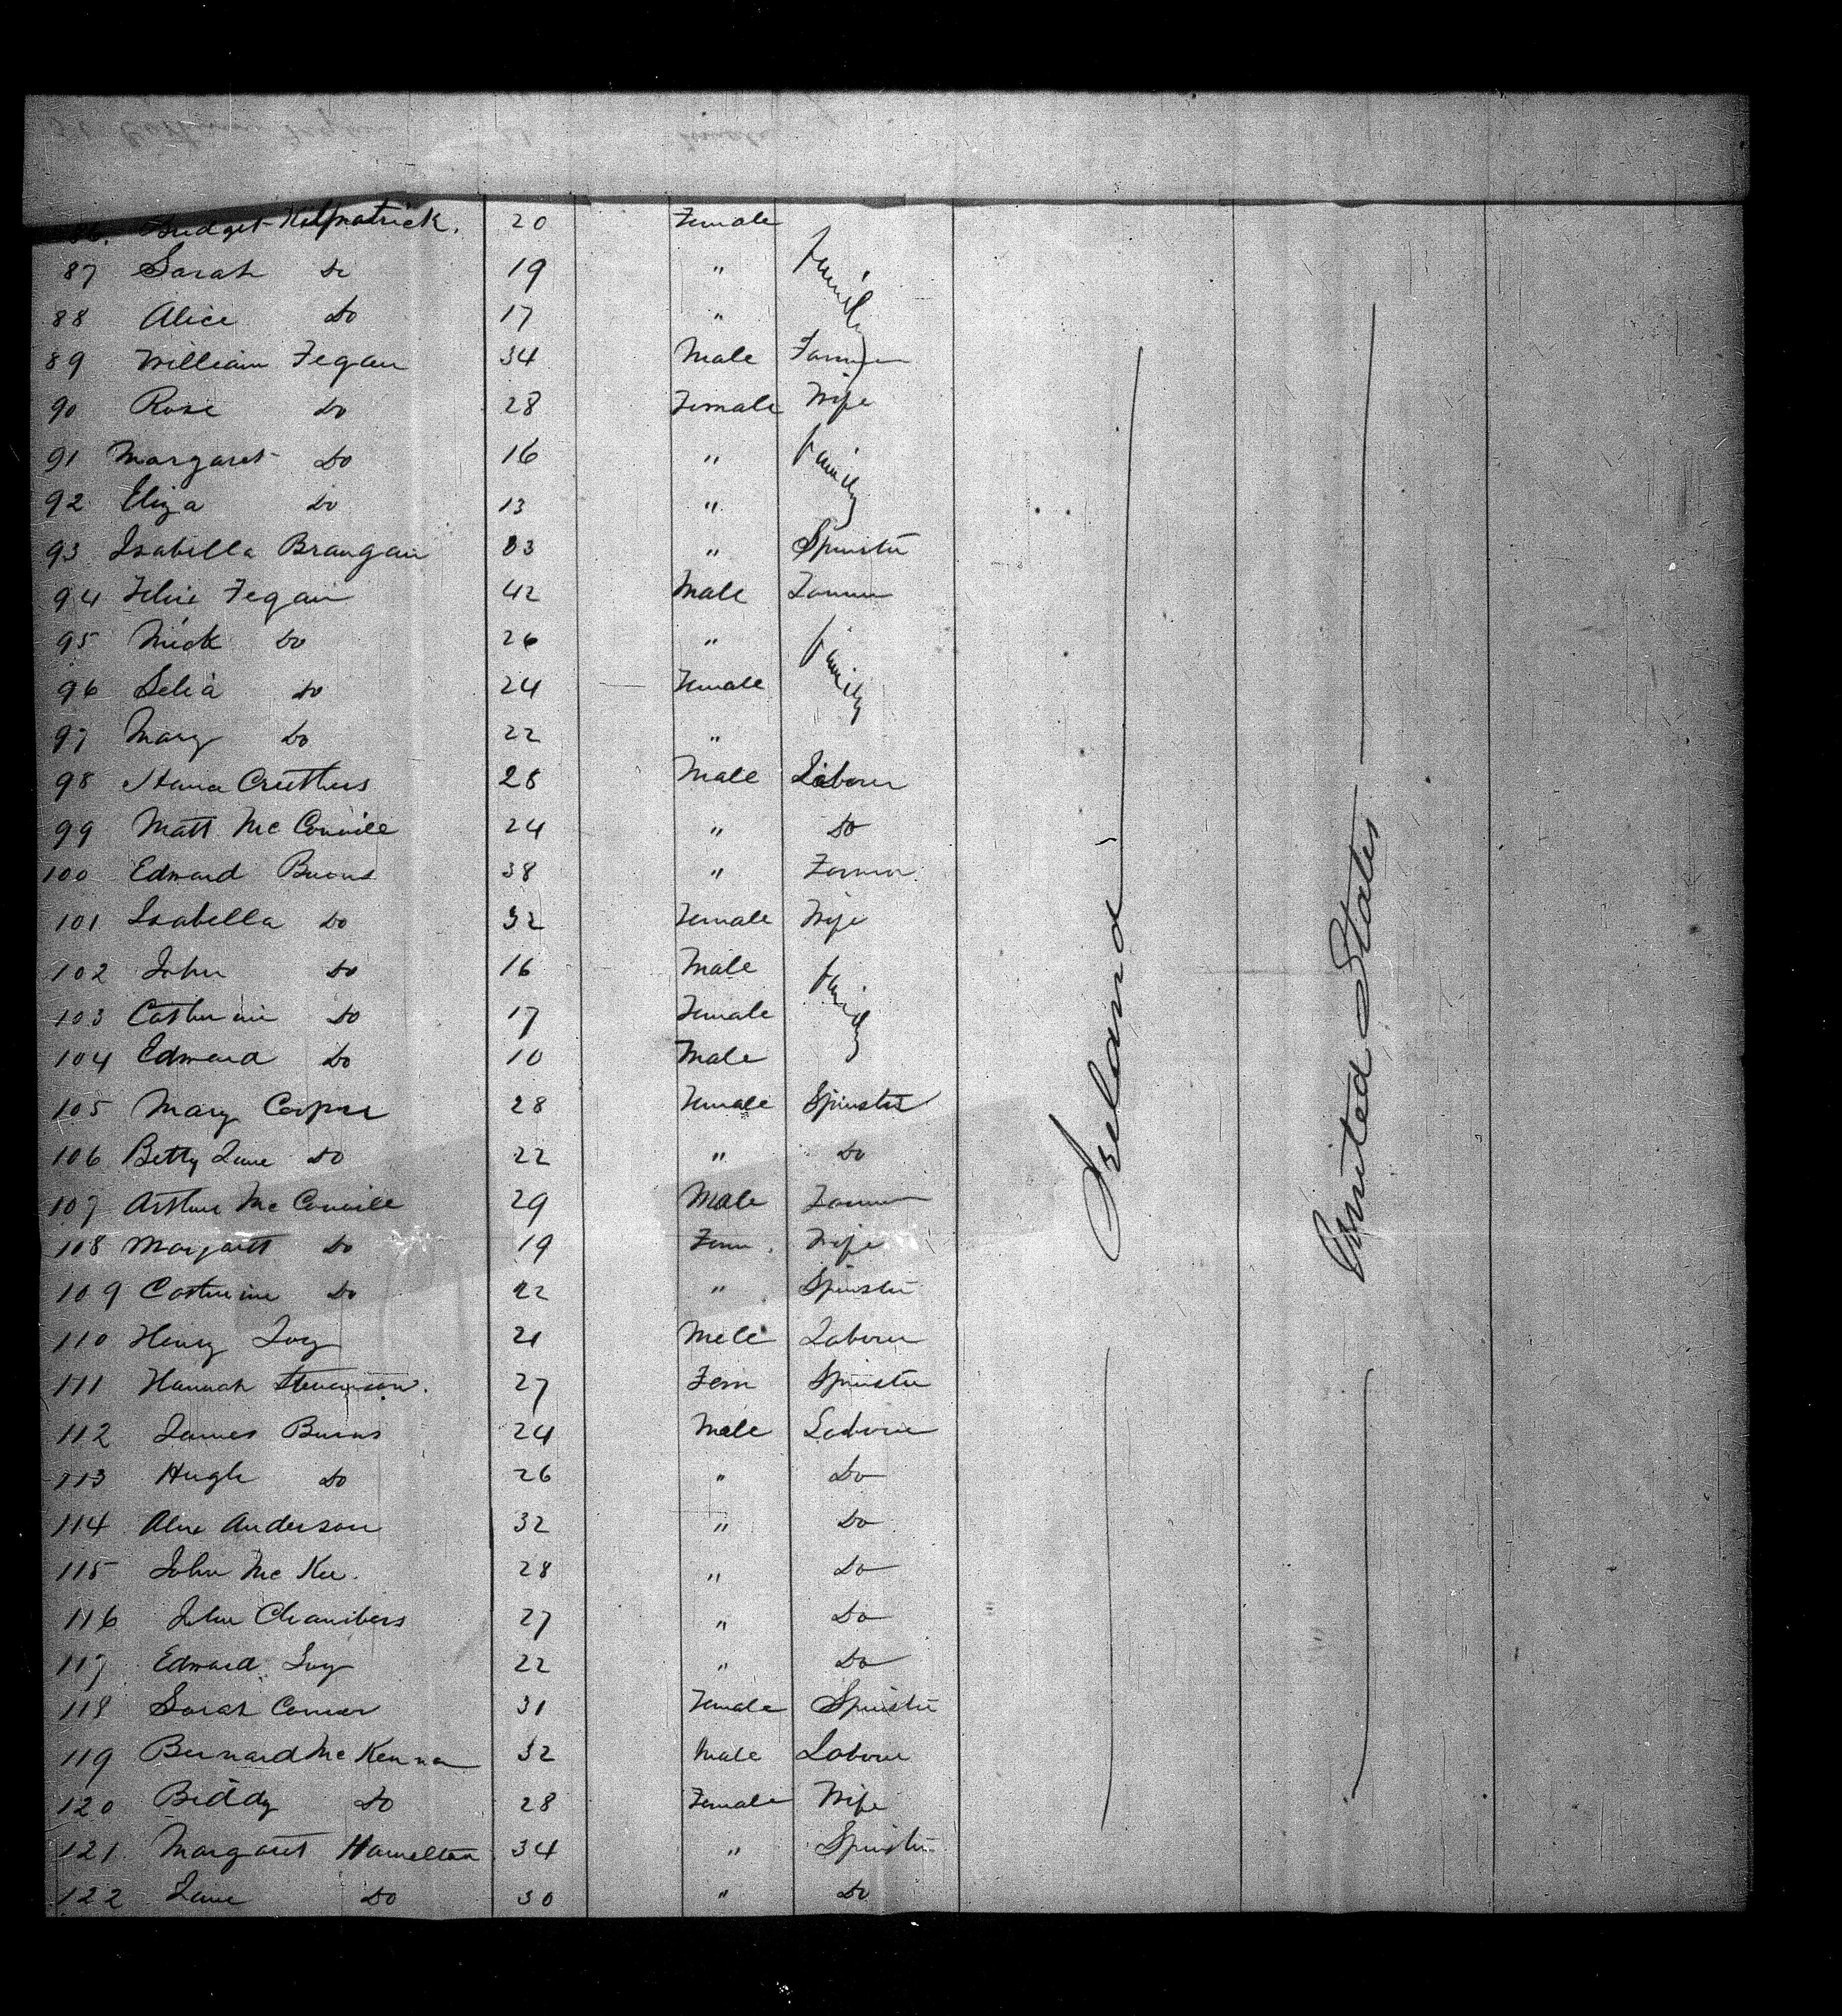 86. Bridget Kilpatrick. 20 Female
87 Sarah Do 19 " Family
88 Alice Do 17 "
89 William Fegan 34 Male Farmer
90 Rose Do 28 Female Wife
91 Margaret Do 16 " Family
92 Eliza Do 13 "
93 Isabella Brangan 33 " Spinster
94 Fegan 42 Male Farmer
95 Mick Do 26 " Family
96 Selia Do 24 Female
97 Mary Do 22 "
98 28 Male Labourer
99 Matt McConville 24 " Do
100 Edward Burns 38 " Farmer
101 Isabella Do 32 Female Wife
102 John Do 16 Male Family
103 Catherine Do 17 Female
104 Edward Do 10 Male
105 Mary Cooper 28 Female Spinster
106 Betty Jane Do 22 " Do
107 Arthur McConville 29 Male Farmer
108 Margarett Do 19 Fem. Wife
109 Catherine Do 22 " Spinster
110 Henry Ivy 21 Male Labourer
111 Hannah Stevenson. 27 Fem Spinster
112 James Burns 24 Male Labourer
113 Hugh Do 26 " Do
114 Alex Anderson 32 " Do
115 John McKee. 28 " Do
116 John Chambers 27 " Do
117 Edward Ivy 22 " Do
118 Sarah Connor 31 Female Spinster
119 Bernard McKenna 32 Male Labourer
120 Biddy Do 28 Female Wife
121 Margaret Hamelton 34 " Spinster
122 Jane Do 30 " Do
Ireland
United States